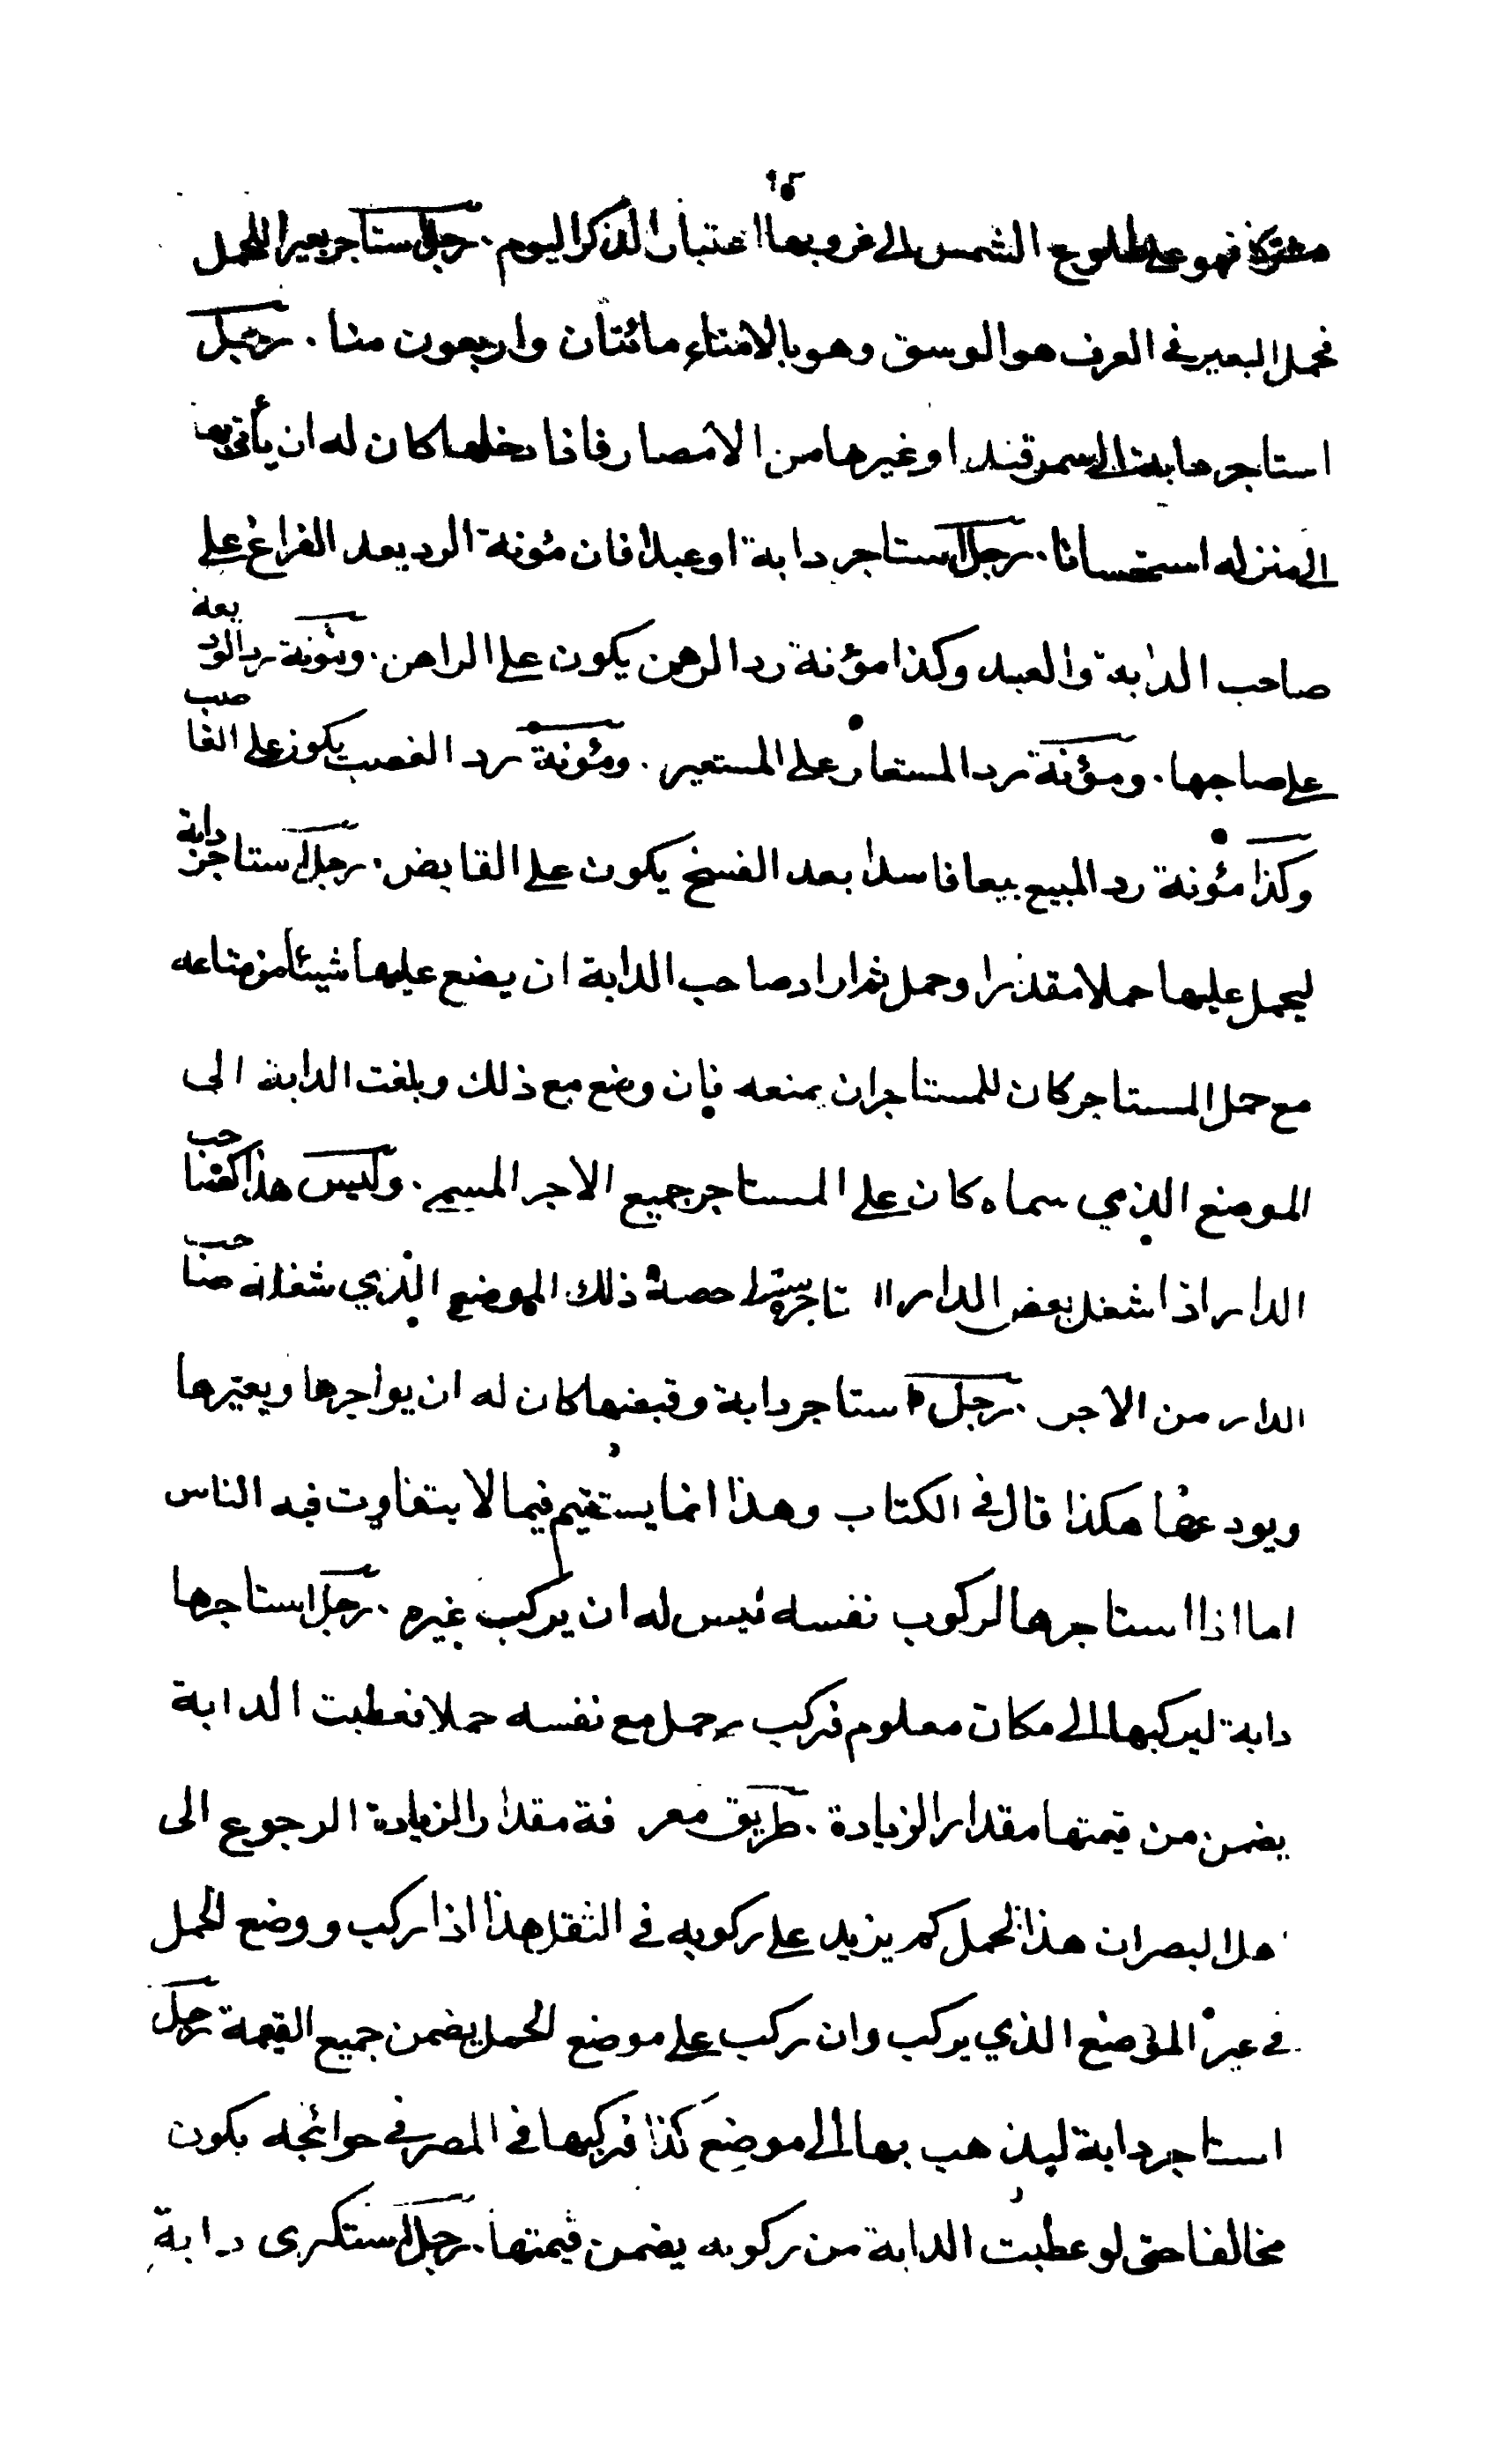 مشتركا فهو على طلوع الشمس الى غروبها اعتبارا لذكر اليوم. رجل استاجر بعيرا للحمل
فحمل البعير في العرف هو الوسق وهو بالامناء مائتان واربعون منا. رجل
استاجر دابة الى سمرقند او غيرها من الامصار فاذا دخلها كان له ان يأتى بها
الى منزله استحسانا. رجل استاجر دابة او عبدا فان مئونة الرد بعد الفراغ على
صاحب الدابة والعبد وكذا مؤنة رد الرهن يكون على الراهن. ومئونة رد الوديعة
على صاحبها. ومؤنة رد المستعار على المستعير. ومئونة رد الغصب يكون على الغاصب
وكذا مئونة رد المبيع بيعا فاسدا بعد الفسخ يكون على القابض. رجل استاجر دابة
ليحمل عليها حملا مقدرا وحمل ثم اراد صاحب الدابة ان يضع عليها شيئا من متاعه
مع حمل المستاجر كان للمستاجر ان يمنعه فان وضع مع ذلك وبلغت الدابة الى
الموضع الذي سماه كان على المستاجر جميع الاجر المسمى. وليس هذا كصاحب
الدار اذا شغل بعض الدار حصة ذلك الموضع الذي شغله صاحب
الدار من الاجر. رجل استاجر دابة وقبضها كان له ان يواجرها ويعيرها
ويودعها هكذا قال في الكتاب وهذا انما يستقيم فيما لا يتفاوت فيه الناس
اما اذا استاجرها لركوب نفسه ليس له ان يركب غيره. رجل استاجرها
دابة ليركبها الى مكان معلوم فركب وحمل مع نفسه حملا فعطبت الدابة
يضمن من قيمتها مقدار الزيادة. طريق معرفة مقدار الزيادة الرجوع الى
اهل البصر ان هذا الحمل كم يزيد على ركوبه في الثقل هذا اذا ركب ووضع الحمل
في غير الموضع الذي يركب وان ركب على موضع الحمل يضمن جميع القيمة رجل
استاجر دابة ليذهب بها الى موضع كذا فركبها في المصر في حوائجه يكون
مخالفا حتى لو عطبت الدابة من ركوبه يضمن قيمتها. رجل استكرى دابة